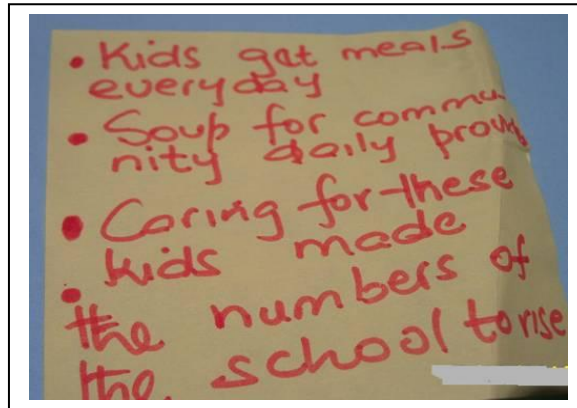 • Kids get meals
everyday
• Soup for commu
nity daily provi
• Caring for these
kids made
• the numbers of
the school to rise